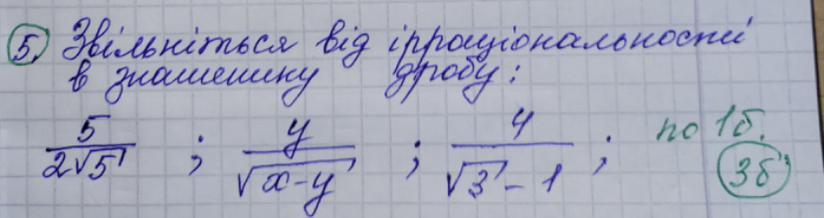 5. Звільніться від ірраціональності
в знаменнику дробу:
5/(2√5) ; y/√(x-y) ; 4/(√3 - 1) ; по 1б.
3б